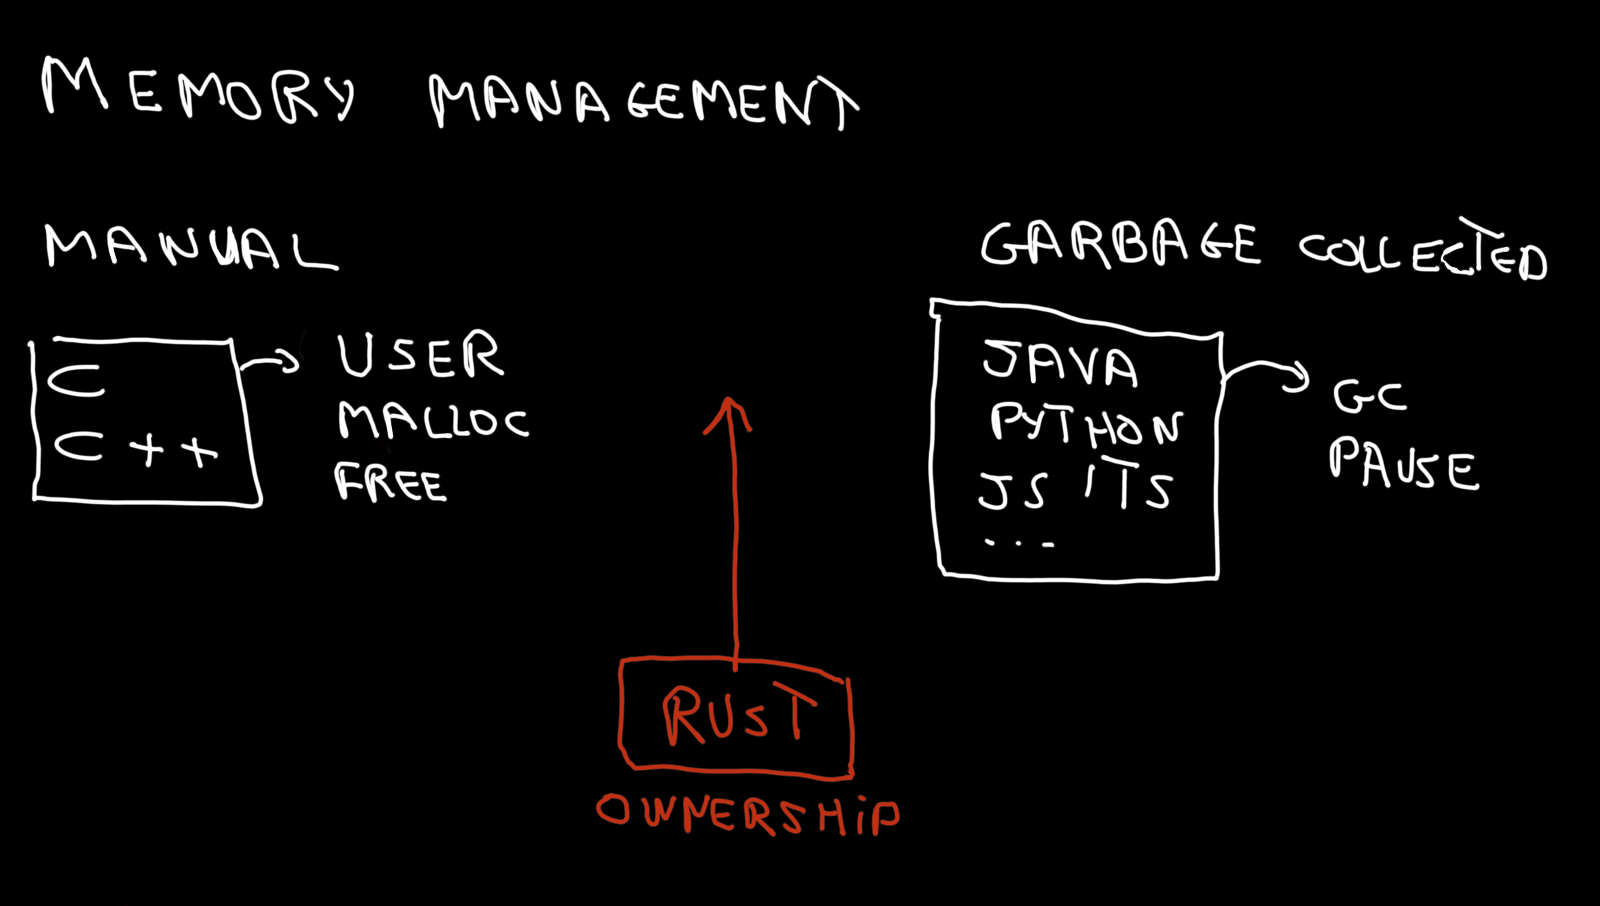 MEMORY MANAGEMENT
MANUAL
C
C++
USER
MALLOC
FREE
GARBAGE COLLECTED
JAVA
PYTHON
JS / TS
...
GC
PAUSE
RUST
OWNERSHIP